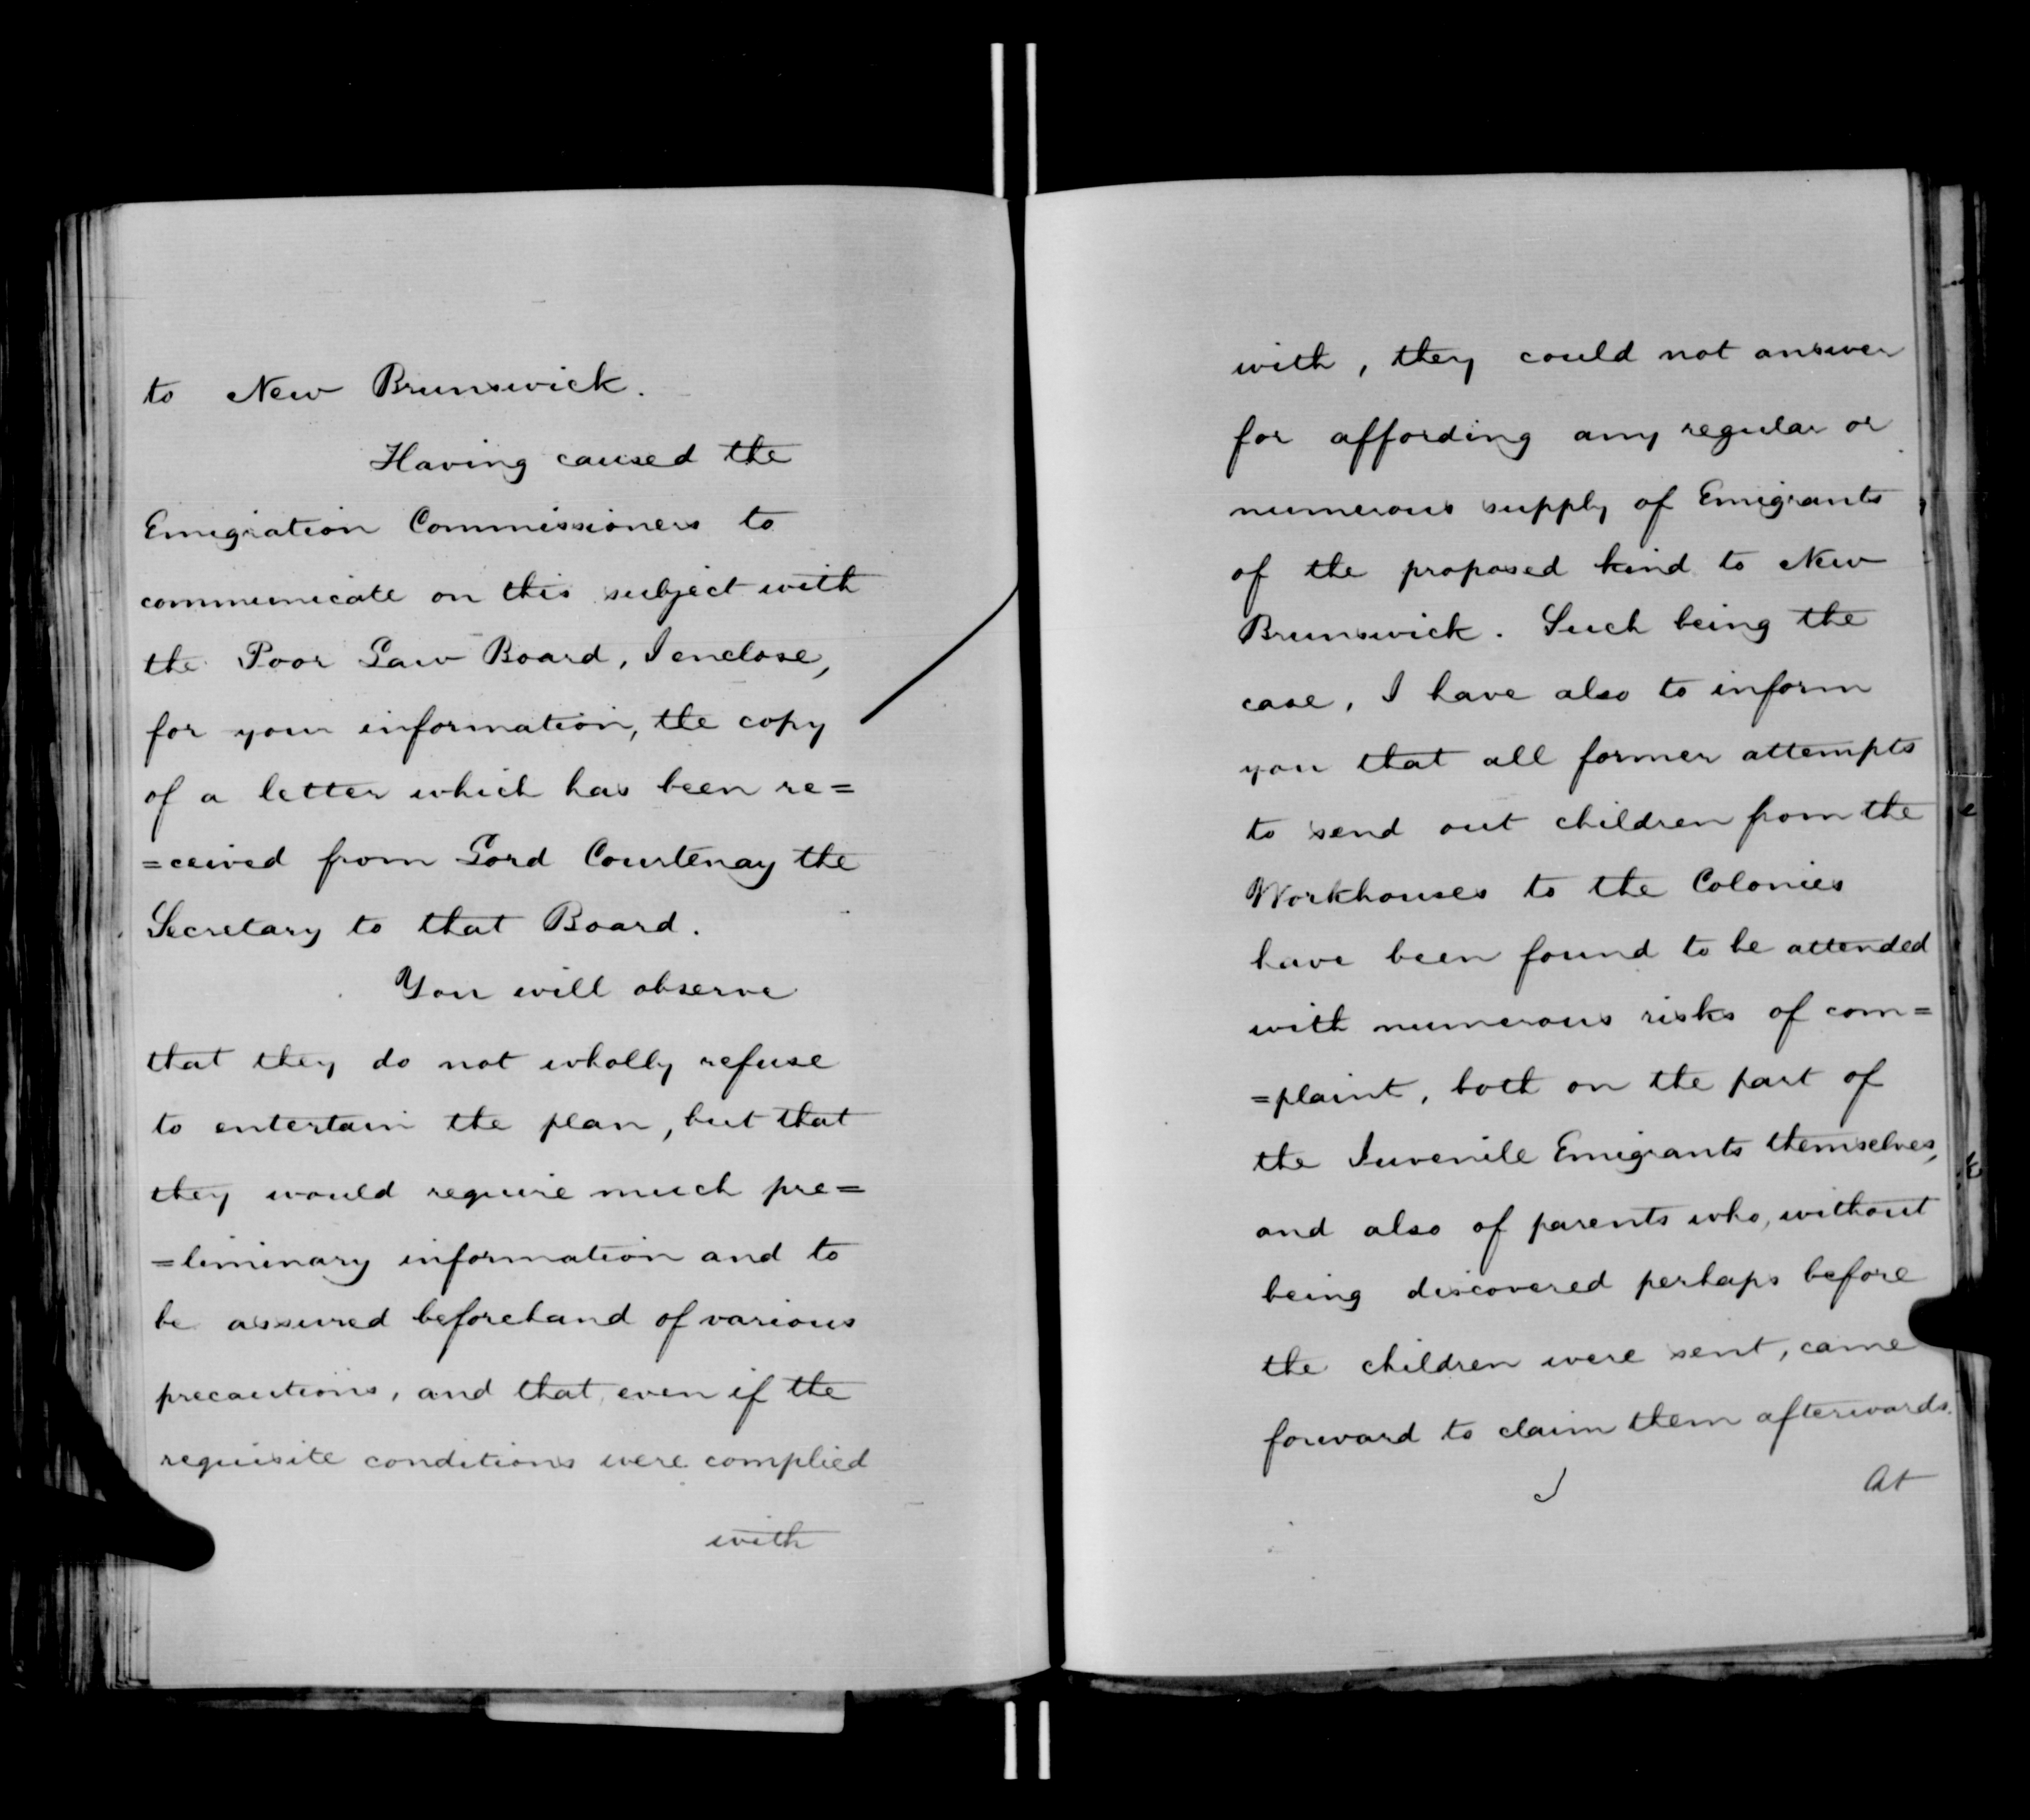 to New Brunswick.
Having caused the
Emigration Commissioners to
communicate on this subject with
the Poor Law Board, I enclose,
for your information, the copy
of a letter which has been re=
=ceived from Lord Courtenay the
Secretary to that Board.
You will observe
that they do not wholly refuse
to entertain the plan, but that
they would require much pre=
=liminary information and to
be assured beforehand of various
precautions, and that even if the
requisite conditions were complied
with
with, they could not answer
for affording any regular or
numerous supply of Emigrants
of the proposed kind to New
Brunswick. Such being the
case, I have also to inform
you that all former attempts
to send out children from the
Workhouses to the Colonies
have been found to be attended
with numerous risks of com=
=plaint, both on the part of
the Juvenile Emigrants themselves,
and also of parents who, without
being discovered perhaps before
the children were sent, came
forward to claim them afterwards.
At